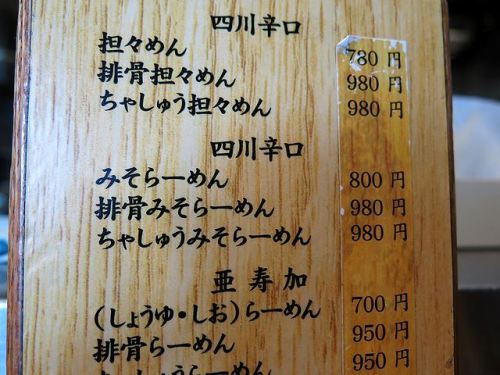 四川辛口
担々めん 780 円
排骨担々めん 980 円
ちゃしゅう担々めん 980 円
四川辛口
みそらーめん 800 円
排骨みそらーめん 980 円
ちゃしゅうみそらーめん 980 円
亜寿加
(しょうゆ・しお)らーめん 700 円
排骨らーめん 950 円
ちゃしゅうらーめん 950 円